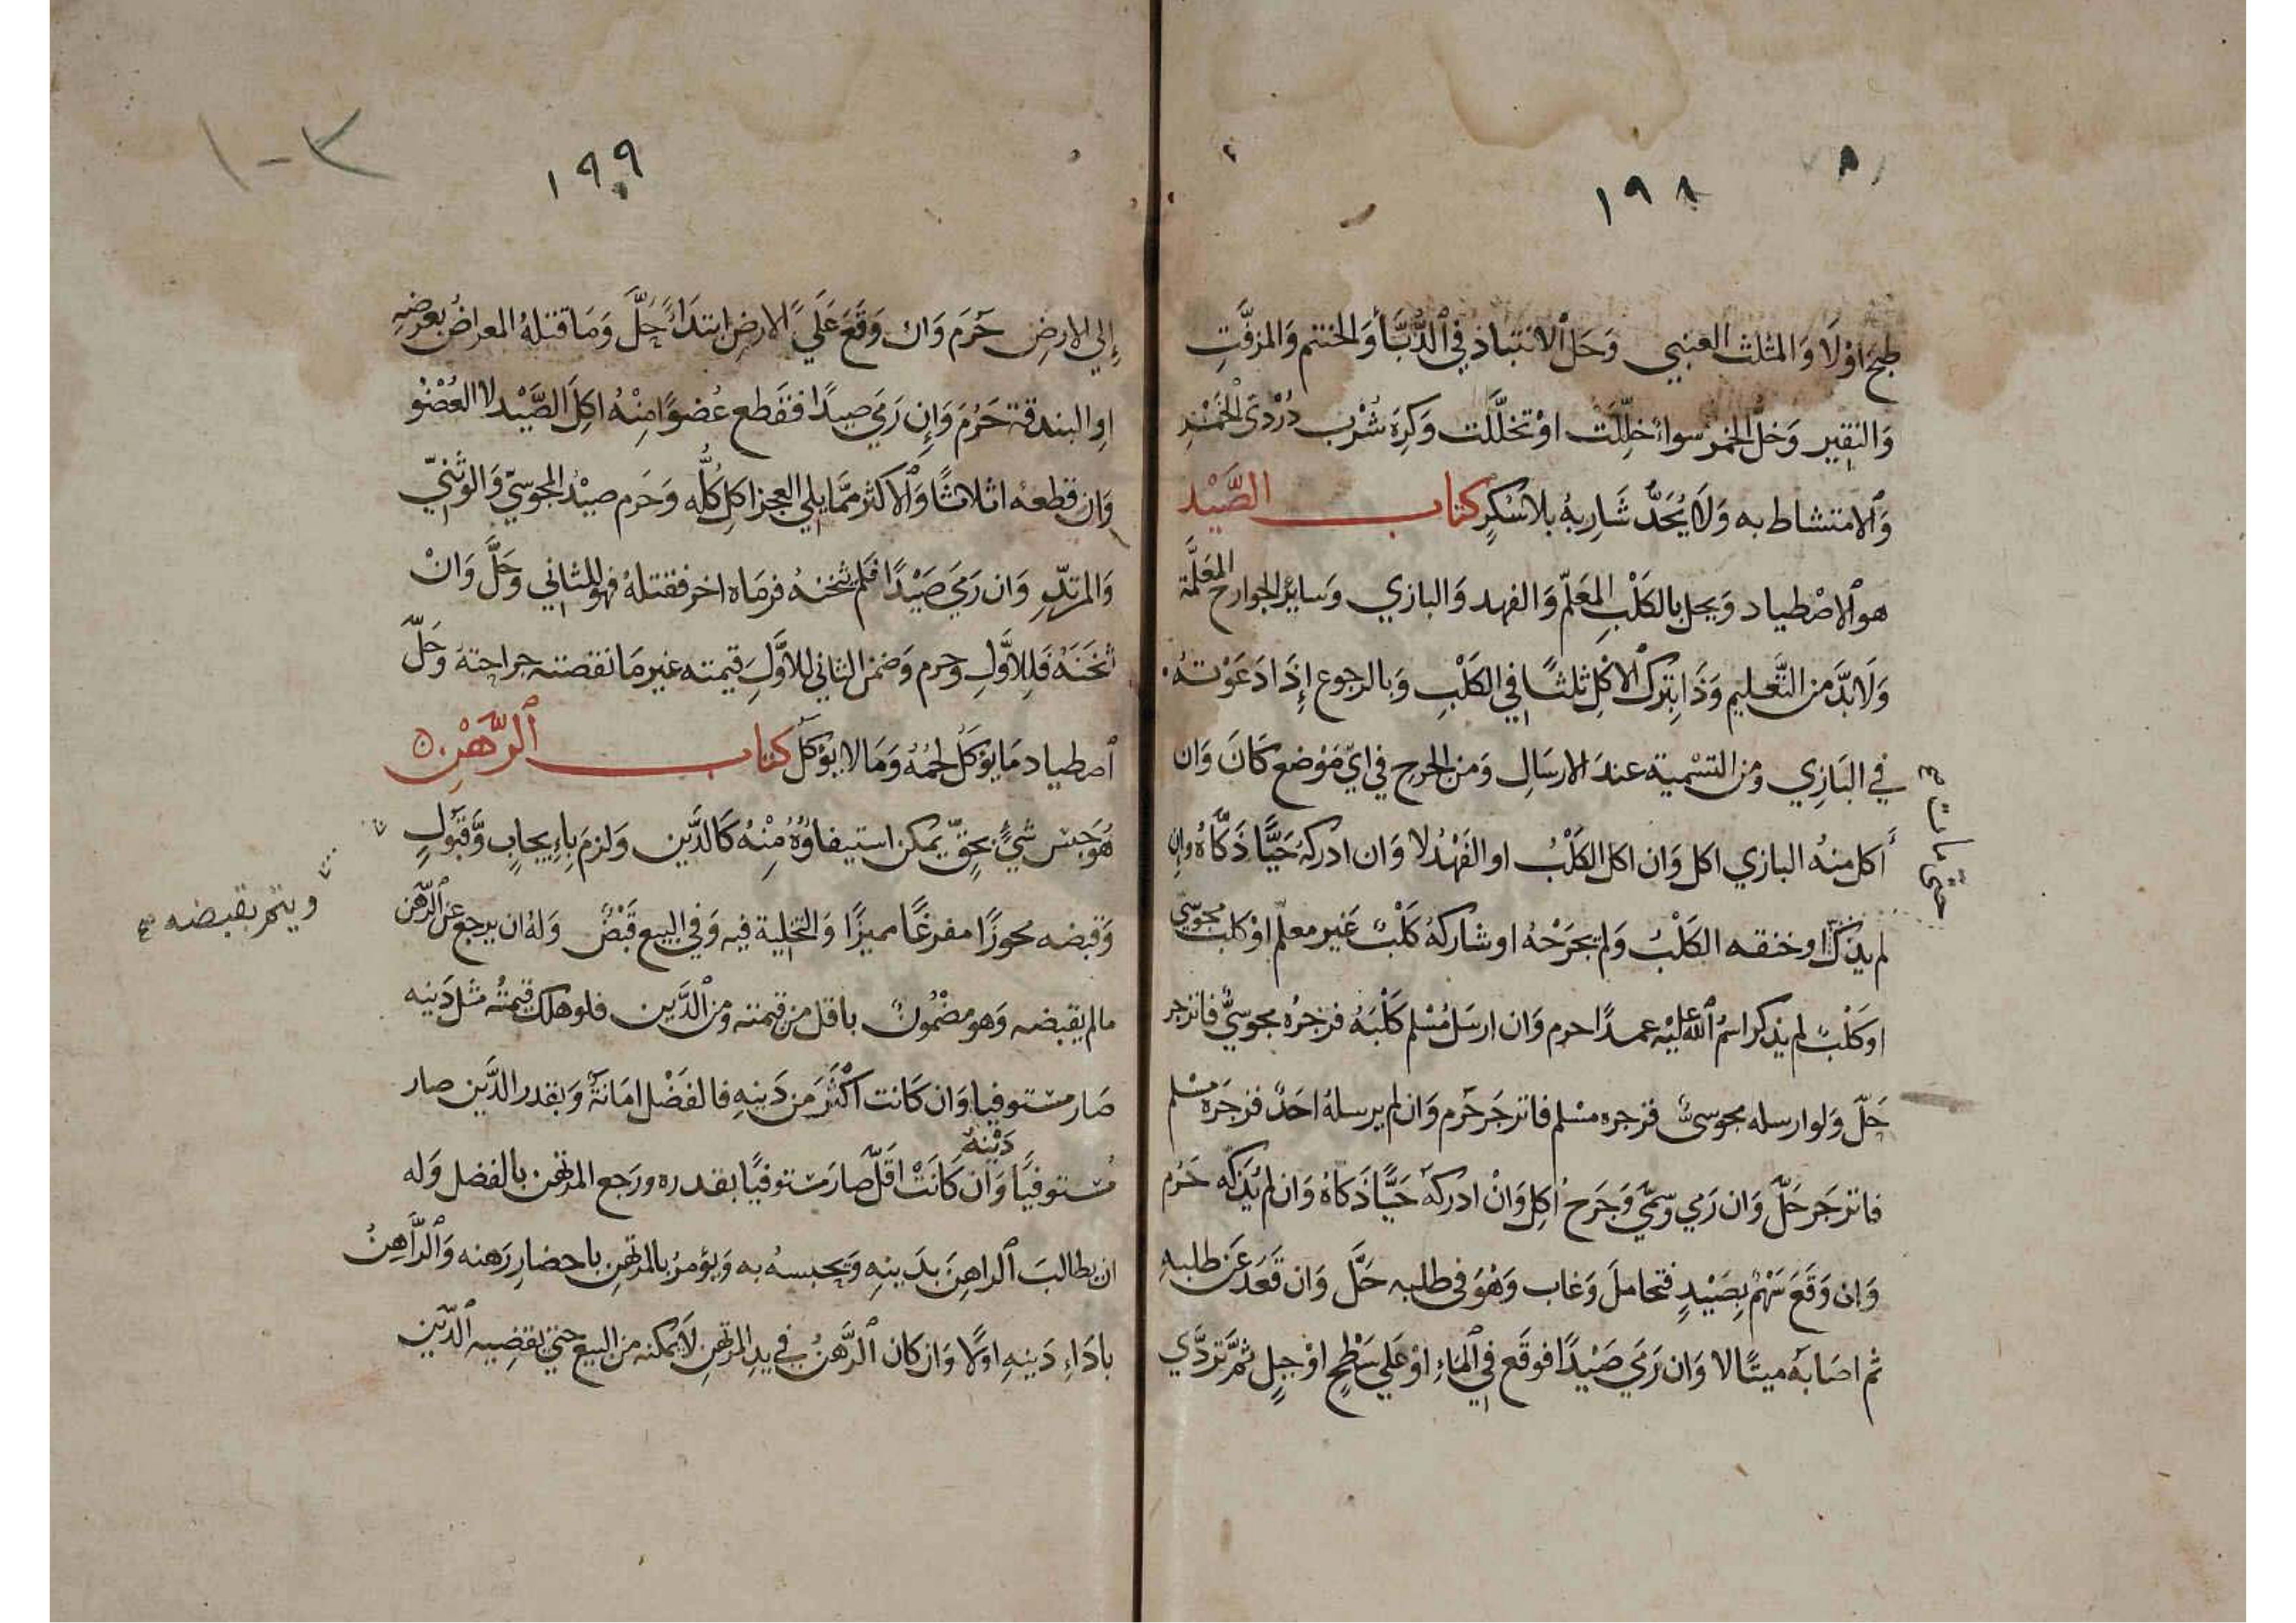 ١٩٨
طبخ اوْلَا وَالمثلث العنبي وَحَل ٱلانتباذ في ٱلدُّبَّأ وَالحنتم وَالمزفَّتِ
وَالنقير وَخلّ الخمر سواءٌ خلِّلَت اوْ تخلَّلت وَكرِهَ شُرْب دُرْدَيّ الخَمْرِ
وَٱلامتشاط به وَلَا يُحَدُّ شَارِبهُ بلا سُكرٍ كتاب الصَّيْد
هو ٱلاصْطياد وَيحل بالكلْبِ المعَلّم وَالفهد وَالبازي وَسايرُ الجوارح المعَلَّمة
وَلَا بدَّ من التَّعليم وَذَا بتركِ ٱلاكْلِ ثلثًا في الكلْبِ وَبالرجوع إذَا دَعَوْتهُ
في البَازِي وَمن التسْمية عندَ الارسَالِ وَمن الجرح في ايّ مَوْضع كَانَ وَان
أكل منهُ البازي اكل وَان اكل الكلْبُ او الفَهْدُ لا وَان ادركهُ حَيًّا ذَكَّاهُ وان
لم يذكّ او خنقه الكلْبُ وَلم يجرَحْهُ او شاركهُ كلْبٌ غَير معلّم اوْ كلب مجوسيّ
او كلْبٌ لم يذكر اسمُ ٱلله عليْهِ عمدًا حرم وَان ارسَل مُسْلم كلْبَهُ فزجرُه مجوسيٌّ فانزجر
حَلّ وَلو ارسله مجوسىٌّ فزجره مسْلم فانزجَر حَرُم وَان لم يرسلهُ احَدٌ فزجَرَهُ مسْلم
فانزجَر حَلّ وَان رَمي وَسمّي وَجَرَحَ اكِل وَانْ ادركهُ حَيًّا ذَكاهُ وَان لم يُذَكِّه حَرُم
وَان وَقَعَ سَهْمٌ بِصَيْدٍ فتحاملَ وَغاب وَهُوَ فى طلبه حَلَّ وَان قَعَدَ عَن طلبهِ
ثم اصَابهُ ميتًا لا وَان رَمَي صَيْدًا فوقَع في ٱلماءِ اوْ عَلي سَطْحٍ اوْ جبلٍ ثمَّ تردَّي
١٩٩
إلي الارضِ حَرُمَ وَان وَقعَ عَلَي الارضِ ابتدَاءً حلَّ وَمَا قتلهُ المعراضُ بعرضِهِ
او البندقة حَرُمَ وَإِن رَمَي صيدًا فقطع عُضوًا مِنْهُ اكِلَ الصَّيْد لا العُضْوُ
وَان قطعهُ اثلاثًا وَٱلاكثر ممَّا يلي العجز اكل كُلُّه وَحَرم صيْدُ المجوسيّ وَالوثَنيّ
وَالمرتدِّ وَان رَمَي صَيْدًا فلم يثخنهُ فرمَاه اخر فقتلهُ فهو للثاني وَحَلَّ وَانْ
اثخَنَهُ فَلِلاوَّلِ وَحرم وَضمن الثاني للاوَّلِ قيمته غير مَا نقصته جراحتهُ وَحَلّ
ٱصطياد مَا يؤكَلُ لحمُهُ وَمَا لا يؤكل كتاب ٱلرَّهْنِ
هُوَ حَبس شيءٍ بحقٍّ يمكن استيفاؤهُ مِنْهُ كَالدَّين وَلزمَ بإيجابٍ وَّقبُولٍ
ويتم بقبضه صح
وَقبضه محوزًا مفرغًا مميزًا وَالتخلية فيه وَفي البيع قَبْضٌ وَلهُ ان يرجع عن ٱلرَّهن
مالم يقبضه وَهو مضْمُونٌ باقل من قيمته وَمن ٱلدَّين فلو هلك قيمتُه مثل دَينِه
صَار مستوفيا وَان كَانت اكْثَرَ من دَينهِ فالفَضْل امَانةٌ وَبقدر الدَّين صار
مُستوفيًا وَان كَانَتْ اقَلّ دَيْنِهِ صارَ مستوفيًا بقدره ورَجع المرتهن بالفضل وَله
ان يطالبَ ٱلراهِنَ بدَينِهِ وَيحبسهُ به وَيؤمرُ بالمرتهن باحضارِ رَهنه وَالرَّاهِنُ
بادَاءِ دَينهِ اوَّلًا وَان كان ٱلرَّهنُ في يدِ المرتهِنِ لَا يمكنه من البيع حتي يقضِيه ٱلدَّين